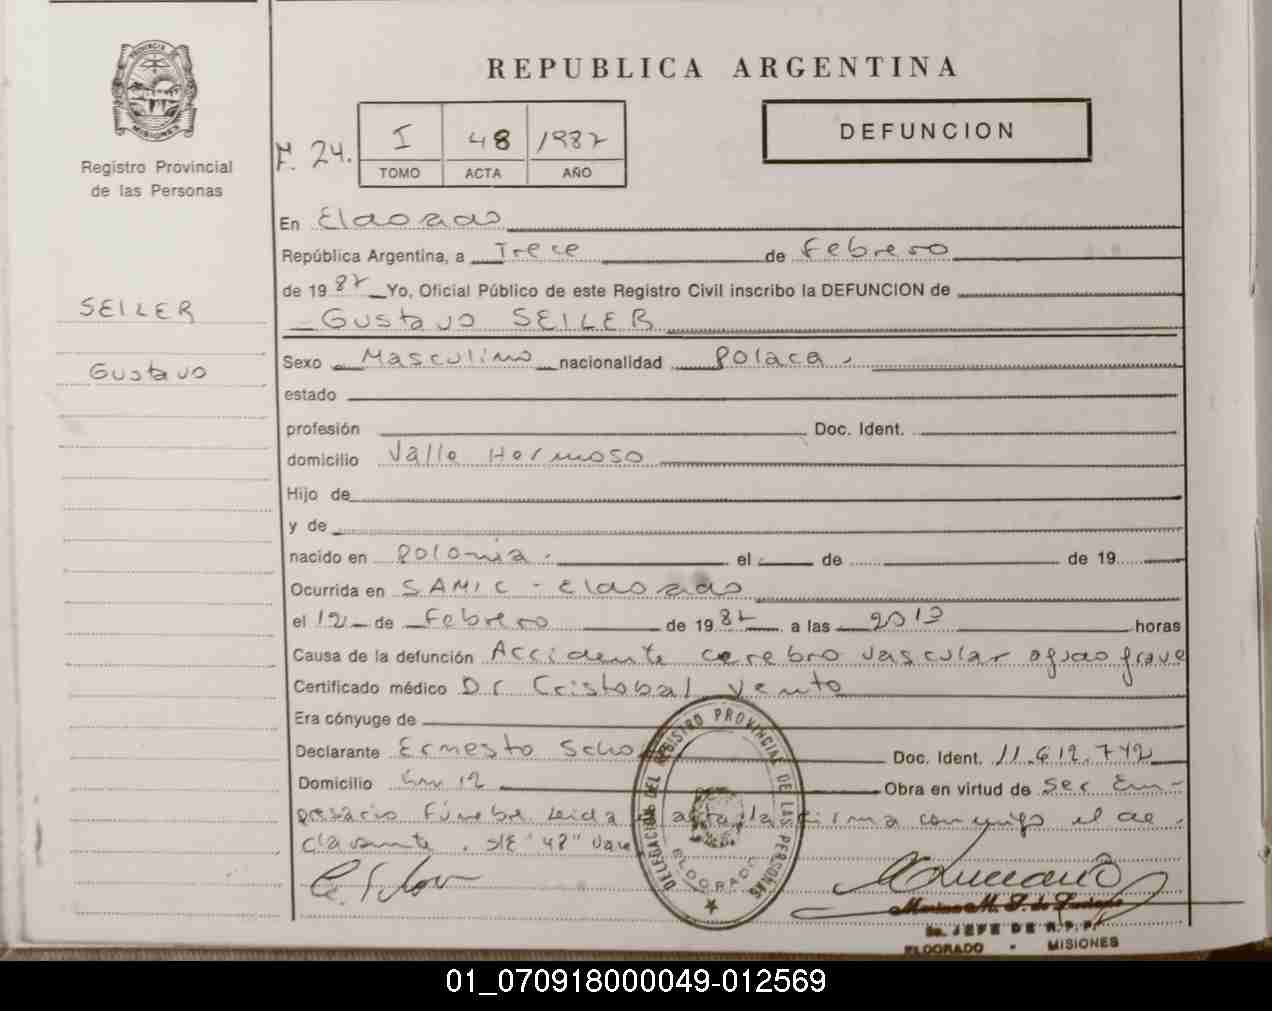 PROVINCIA DE
MISIONES
Registro Provincial
de las Personas
SEILER
Gustavo
REPUBLICA ARGENTINA
F. 24.
I 48 1987
TOMO ACTA AÑO
DEFUNCION
En Eldorado
República Argentina, a Trece de Febrero
de 1987 Yo, Oficial Público de este Registro Civil inscribo la DEFUNCION de
Gustavo SEILER
Sexo Masculino nacionalidad Polaca.
estado
profesión Doc. Ident.
domicilio Valle Hermoso
Hijo de
y de
nacido en Polonia. el de de 19
Ocurrida en SAMIC - Eldorado
el 12 de Febrero de 1987 a las 2013 horas
Causa de la defunción Accidente cerebro vascular agudo grave
Certificado médico Dr Cristobal Vento
Era cónyuge de
Declarante Ernesto Doc. Ident. 11.612.742
Domicilio Km 12 Obra en virtud de Ser Em-
presario Fúnebre Leida el acta, la firma conmigo el de-
clarante. S/E "48" Vale
DELEGACION DEL REGISTRO PROVINCIAL DE LAS PERSONAS
ELDORADO
JEFE DE R.P.P.
ELDORADO - MISIONES
01_070918000049-012569